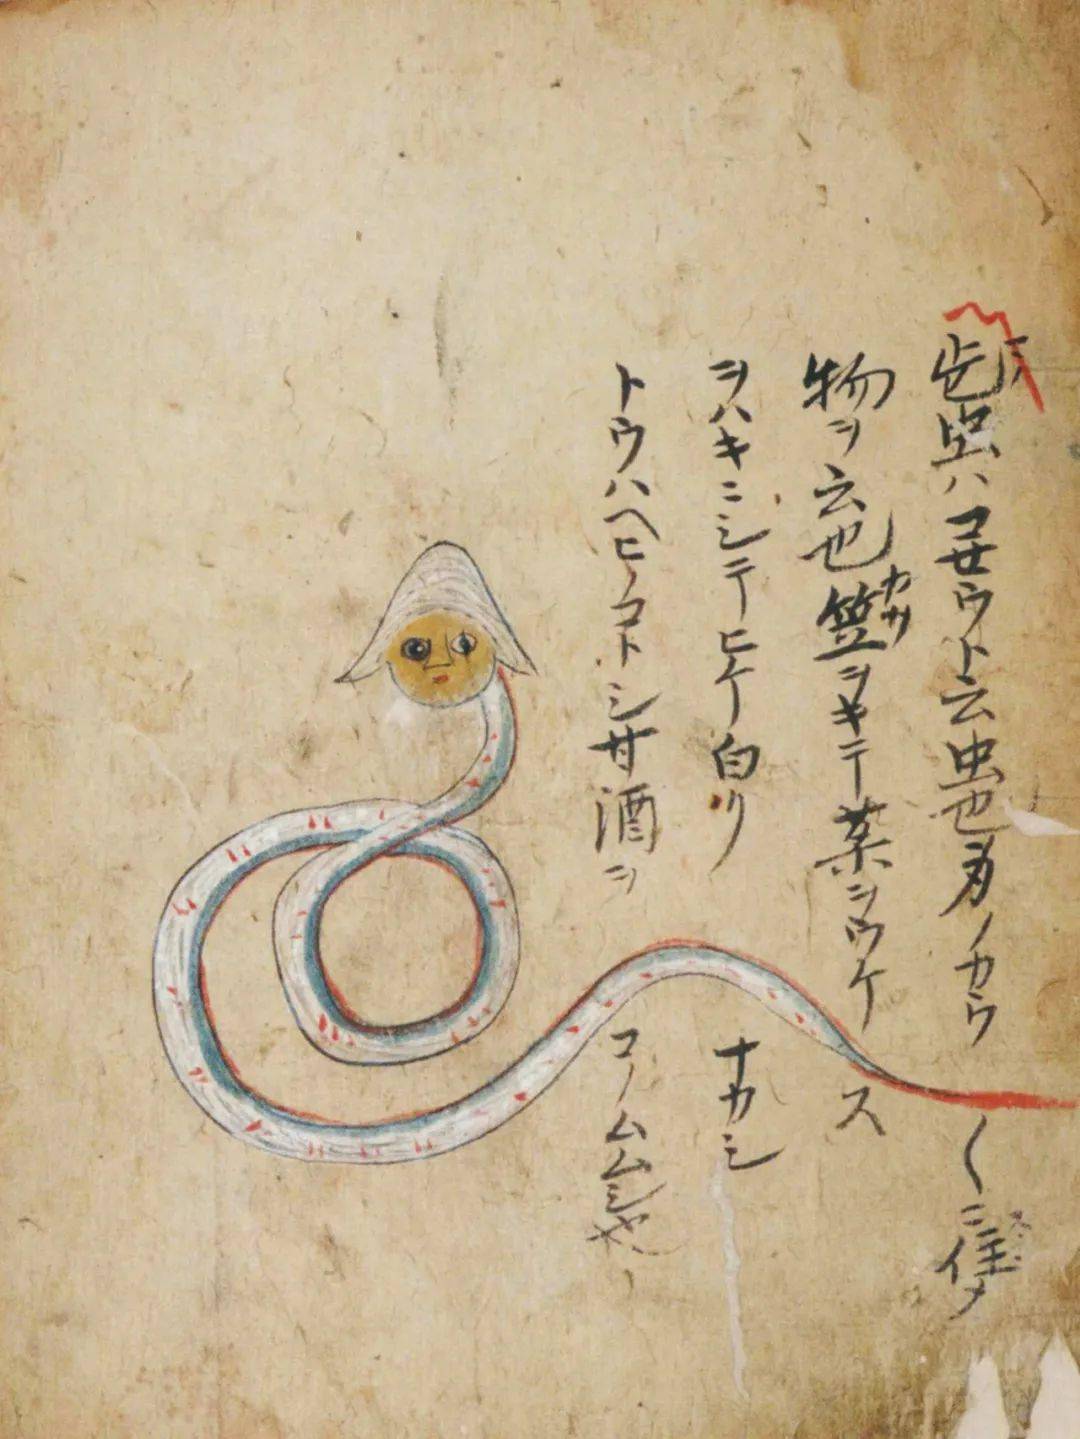 此虫ハコセウト云虫也亥ノカウ〱ニ住メ
物ヲ云也笠ヲキテ薬ヲウケス
カサ
ヲハキニシテヒケ白リナカシ
トウハヘヒノコトシ甘酒ヲコノムムシ也